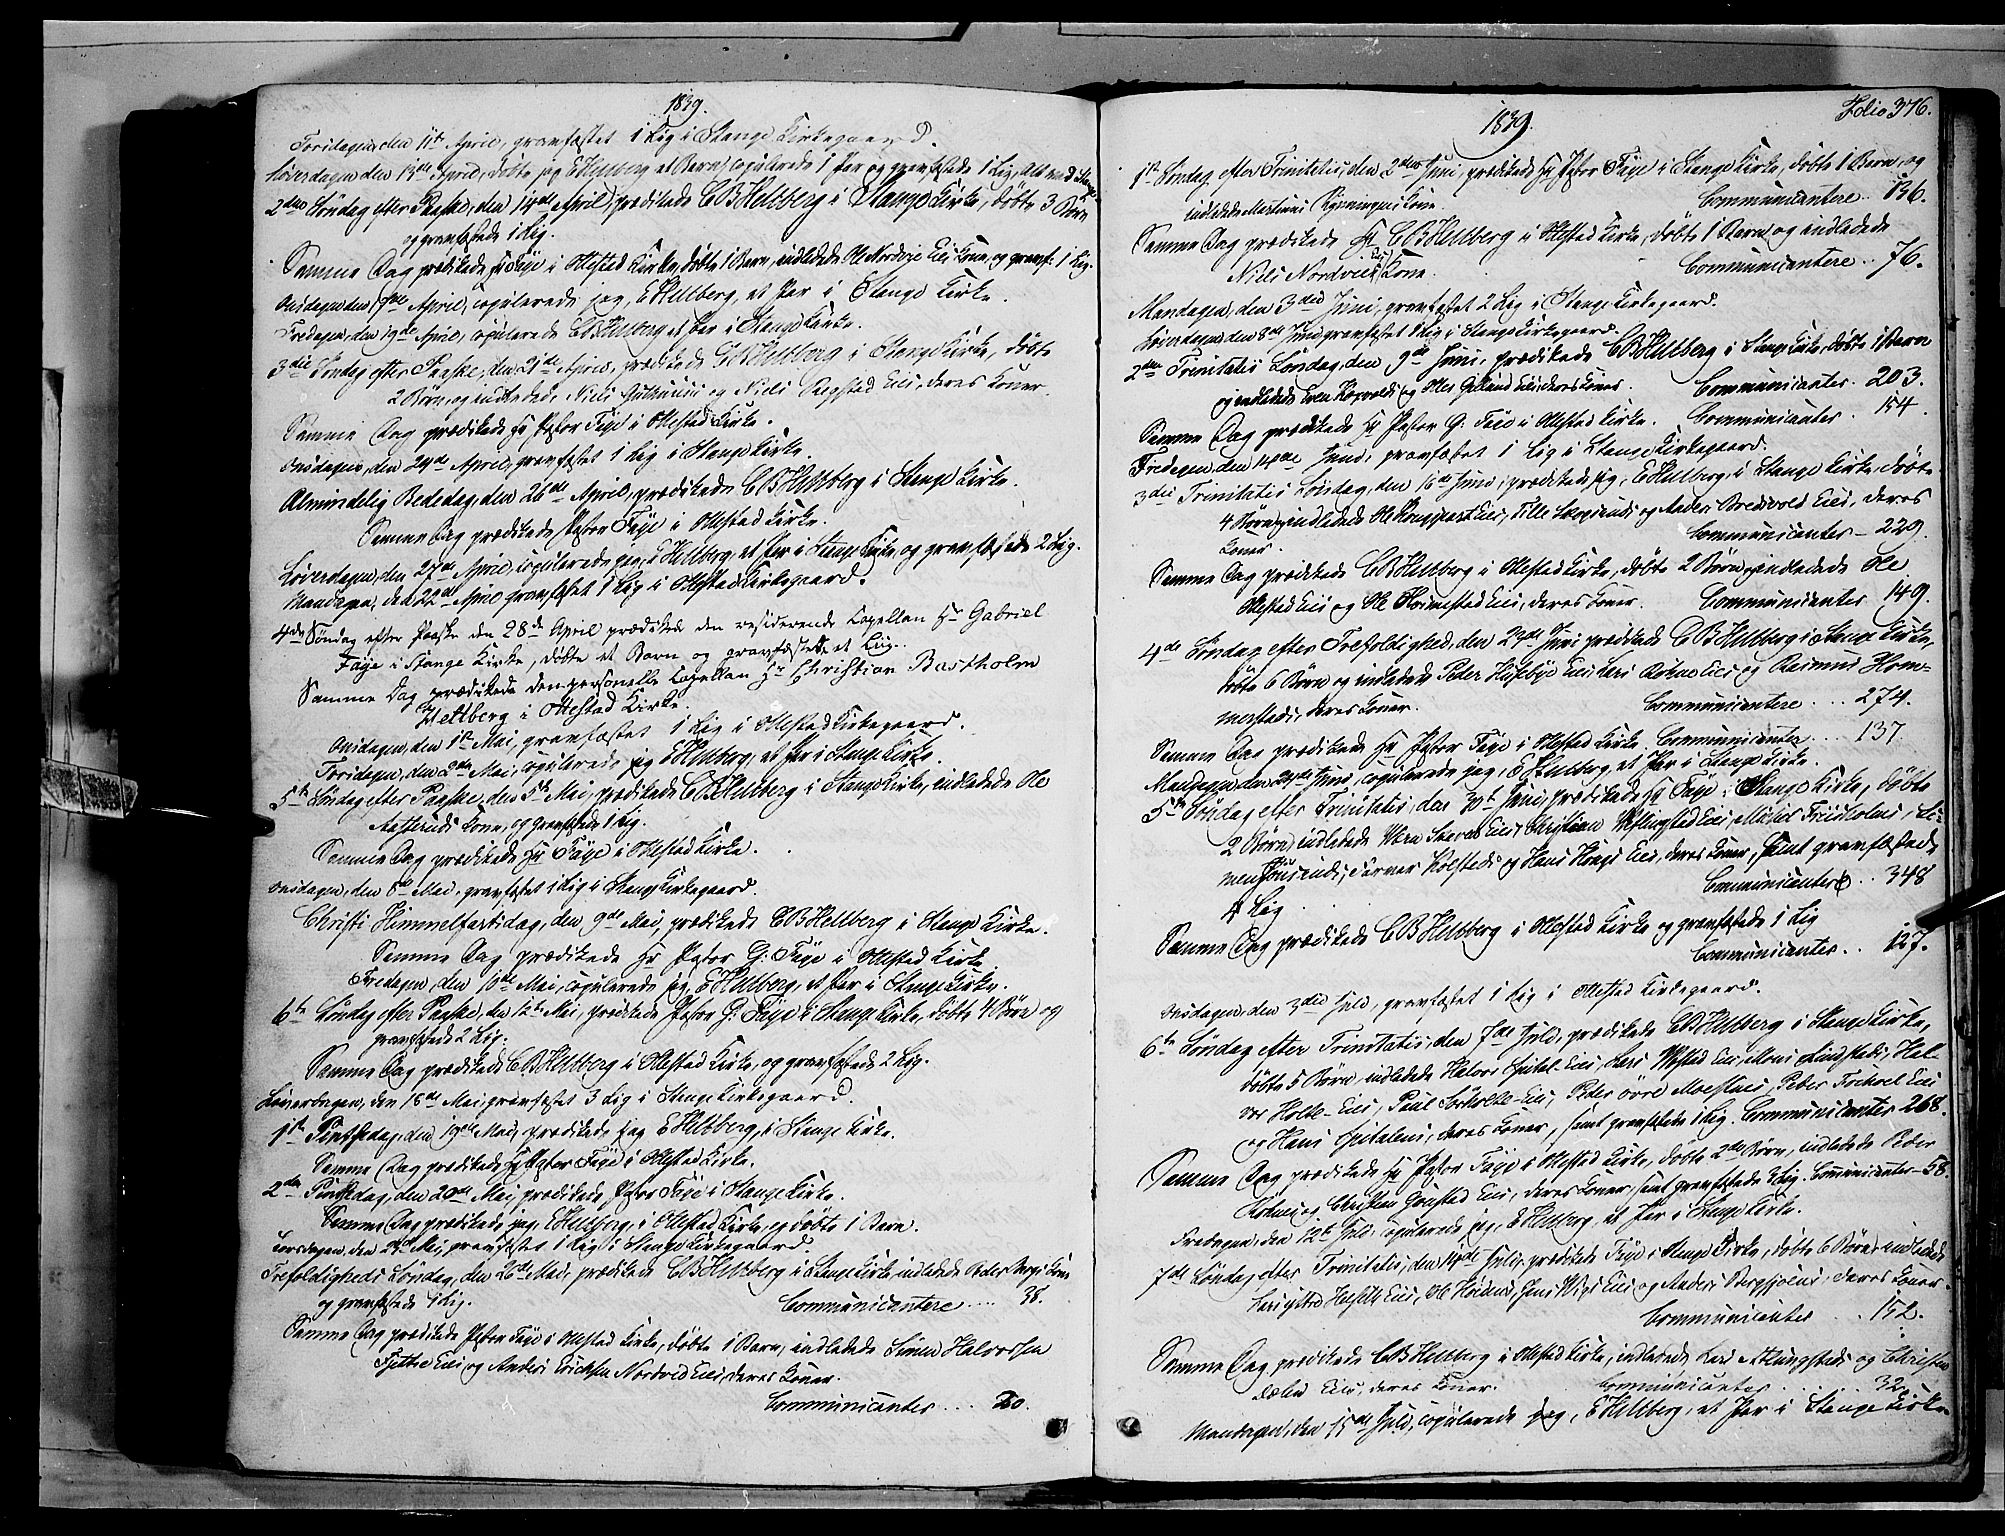 1839.
Torsdagen, den 11te April, gravfæstet 1 Lig i Stange Kirkegaard.
Løverdagen den 13de April, døbte jeg E Heltberg et Barn, copulerede 1 Par og gravfæstede 1 Lig, Alt ved Stange
2den Søndag efter Paaske, den 14de April, prædikede CB Heltberg i Stange Kirke, døbte 3 Børn
og gravfæstede 1 Lig.
Samme Dag prædikede Hr Faÿe i Ottestad Kirke, døbte 1 Barn, indledede Ole Nordvie Eies Kone, og gravf. 1 Lig.
Onsdagen den 17de April, copulerede jeg, E Heltberg, et Par i Stange Kirke.
Fredagen, den 19de April, copulerede CB Heltberg et Par i Stange Kirke.
3die Søndag efter Paaske, den 21de April, prædikede CB Heltberg i Stange Kirke, døbte
2 Børn, og indledede, Niels Guthuus og Niels Regstad Eies, deres Koner.
Samme Dag prædikede Hr Pastor Faÿe i Ottestad Kirke.
Onsdagen, den 24de April, gravfæstet 1 Lig i Stange Kirke.
Almindelig Bededag, den 26de April, prædikede CB Heltberg i Stange Kirke.
Samme Dag prædikede Pastor Faÿe i Ottestad Kirke.
Løverdagen, den 27de April, copulerede jeg, E Heltberg, et Par i Stange Kirke, og gravfæstede 2 Lig.
Mandagen, den 22de April gravfæstet 1 Lig i Ottestad Kirkegaard.
4de Søndag efter Paaske den 28de April prædikede den residerende Capellan Hr Gabriel
Faÿe i Stange Kirke, døbte et Barn og gravfæstede et Liig.
Samme Dag prædikede den personelle Capellan Hr Christian Bastholm
Heltberg i Ottestad Kirke.
Onsdagen, den 1ste Mai, gravfæstet 1 Lig i Ottestad Kirkegaard.
Torsdagen, den 2den Mai, copulerede jeg E Heltberg, et Par i Stange Kirke.
5te Søndag efter Paaske, den 5te Mai, prædikede CB Heltberg i Stange Kirke, indledede Ole
Aasteruds Kone, og gravfæstede 1 Lig.
Samme Dag prædikede Hr Faÿe i Ottestad Kirke.
Onsdagen, den 8de Mai, gravfæstet 1 Lig i Stange Kirkegaard.
Christi Himmelfartsdag, den 9de Mai, prædikede CB Heltberg i Stange Kirke.
Samme Dag prædikede Hr Pastor G. Faÿe i Ottestad Kirke
Fredagen, den 10de Mai, copulerede jeg, E Heltberg, et Par i Stange Kirke.
6te Søndag efter Paaske, den 12te Mai, prædikede Pastor G. Faÿe i Stange Kirke, døbte 4 Børn og
gravfæstede 2 Lig.
Samme Dag prædikede CB Heltberg i Ottestad Kirke, og gravfæstede 2 Lig.
Løverdagen, den 18de Mai gravfæstet 3 Lig i Stange Kirkegaard.
1ste Pintsedag, den 19de Mai, prædikede jeg E Heltberg, i Stange Kirke.
Samme Dag prædikede Hr Pastor Faÿe i Ottestad Kirke.
2den Pintsedag, den 20de Mai prædikede Pastor Faÿe i Stange Kirke.
Samme Dag prædikede jeg, E Heltberg, i Ottestad Kirke, og døbte 1 Barn.
Torsdagen, den 23de Mai, gravfæstet 1 Lig i Stange Kirkegaard.
Trefoldigheds Søndag, den 26de Mai, prædikede CB Heltberg i Stange Kirke, indledede Peder Bergs Kone
og gravfæstede 1 Lig. Communicantere .... 38.
Samme Dag prædikede Pastor Faÿe i Ottestad Kirke, døbte 1 Barn, indledede Simen Halvorsen
Tjette Eies og Anders Erichsen Nordvie Eies, deres Koner.
Communicantes ... 20.
1839.
Folio 376.
1ste Søndag efter Trinitatis, den 2den Juni, prædikede Hr Pastor Faÿe i Stange Kirke, døbte 1 Barn, og
indledede Martinus Kone. Communicantere .. 136.
Samme Dag prædikede Hr CB Heltberg i Ottestad Kirke, døbte 1 Barn og indledede
Niels Nordvies Eies Kone. Communicantere .. 76.
Mandagen, den 3die Juni, gravfæstet 2 Lig i Stange Kirkegaard.
Løverdagen, den 8de Juni gravfæstet 1 Lig i Stange Kirkegaard.
2den Trinitatis Søndag, den 9de Juni, prædikede CB Heltberg i Stange Kirke, døbte 1 Barn
og indledede Even og Ole Eies, deres Koner. Communicantes. 203.
Samme Dag prædikede Hr Pastor G. Faÿe i Ottestad Kirke. Communicantes . 154.
Fredagen, den 14de Juni, gravfæstet 1 Lig i Stange Kirkegaard.
3die Trinitatis Søndag, den 16de Juni, prædikede jeg, E Heltberg, i Stange Kirke, døbte
4 Børn, og indledede Ole Eies, Tille og Anders Bredvold Eies, deres
Koner. Communicantes - 229.
Samme Dag prædikede CB Heltberg i Ottestad Kirke, døbte 2 Børn, og indledede Ole
Ottestad Eies og Ole Eies, deres Koner. Communicantes 149.
4de Søndag efter Trefoldighed, den 23de Juni prædikede CB Heltberg i Stange Kirke,
døbte 6 Børn og indledede Peder Huseby Eies, Lars Eies og Rasmus Hom-
merstads, deres Koner. Communicantere ... 274.
Samme Dag prædikede Hr Pastor Faÿe i Ottestad Kirke. Communicantes ... 137
Mandagen, den 24de Juni, copulerede jeg, E Heltberg, et Par i Stange Kirke.
5te Søndag efter Trinitatis, den 30te Juni, prædikede Hr Faÿe i Stange Kirke, døbte
2 Børn, indledede Eies, Christian Eies, Michel Friisholms, Si-
men, Holsteds og Hans Eies, deres Koner, samt gravfæstede
4 Lig Communicantere .. 348
Samme Dag prædikede CB Heltberg i Ottestad Kirke og gravfæstede 1 Lig
Communicantes .. 127.
Onsdagen, den 3die Juli, gravfæstet 1 Lig i Ottestad Kirkegaard.
6te Søndag efter Trinitatis, den 7de Juli, prædikede CB Heltberg i Stange Kirke,
døbte 5 Børn, indledede Halvor Spital-Eies, Lars Vestad Eies, Mons Lindsteds, Hal-
vor Holte-Eies, Paul Sørholte-Eies, Peder øvre Moestues, Peder Eies
og Hans Spitalens, deres Koner, samt gravfæstede 1 Lig. Communicantes 268.
Samme Dag prædikede Hr Pastor Faÿe i Ottestad Kirke, døbte 2de Børn, indledede Peder
og Christen Eies, deres Koner, samt gravfæstede 3 Lig. Communicantes - 58.
Fredagen, den 12te Juli, copulerede jeg, E Heltberg, et Par i Stange Kirke.
7de Søndag efter Trinitatis, den 14de Juli, prædikede Faÿe i Stange Kirke, døbte 6 Børn, indledede
Lars yttre Eies, Ole, Jens Eies og Anders, deres Koner.
Communicantes .. 152.
Samme Dag prædikede CB Heltberg i Ottestad Kirke, indledede Lars og Christen
Eies, deres Koner. Communicantes ... 32.
Mandagen, den 15de Juli, copulerede jeg, E Heltberg, et Par i Stange Kirke